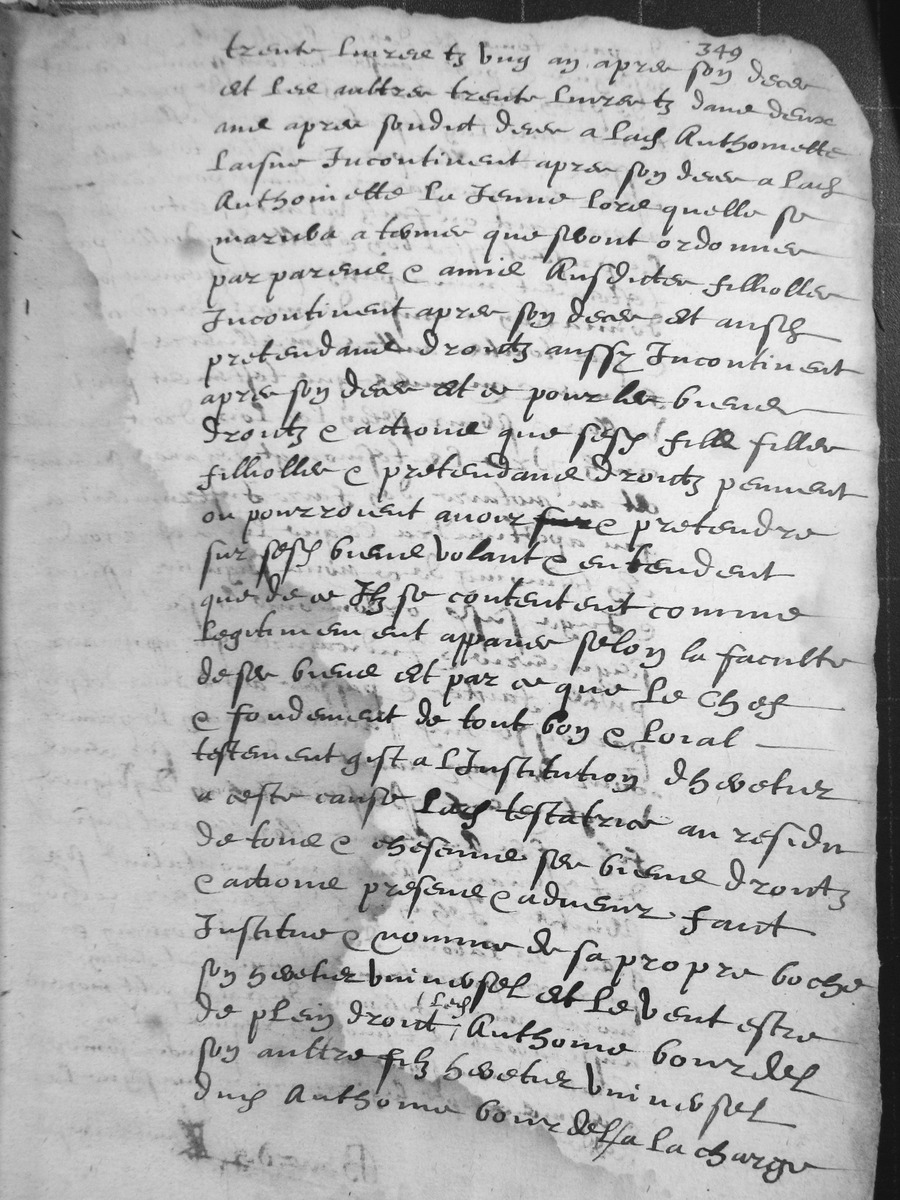 349
trente livres tz ung an apres son deces
et les aultres trente livres tz dans deux
ans apres sondict deces a lad Anthoinette
laisne Incontinent apres son deces a lad
Anthoinette la Jeune lors quelle se
mariera a termes que seront ordonnes
par parens e amis Ausdictes filholles
Incontinent apres son deces et ausd
pretendans droitz aussy Incontinent
apres son deces et ce pour les biens
droitz e actions que sesd filz filles
filholles e pretendans droitz peuvent
ou pourroient avoir e pretendre
sur sesd biens volant e entendent
que de ce Ilz se contentent comme
legitimement appanes selon la faculte
de ses biens et par ce que le chef
e fondement de tout bon e loial
testement gist a lInstitution dheretier
a ceste cause lad testatrice au residu
de tous e chescuns ses biens droitz
e actions presens e advenir faict
Institue e nomme de sa propre boche
son heretier universel et le veut estre
de plein droict led Anthoine bourdel
son aultre filz heretier universel
dud Anthoine bourdel a la charge